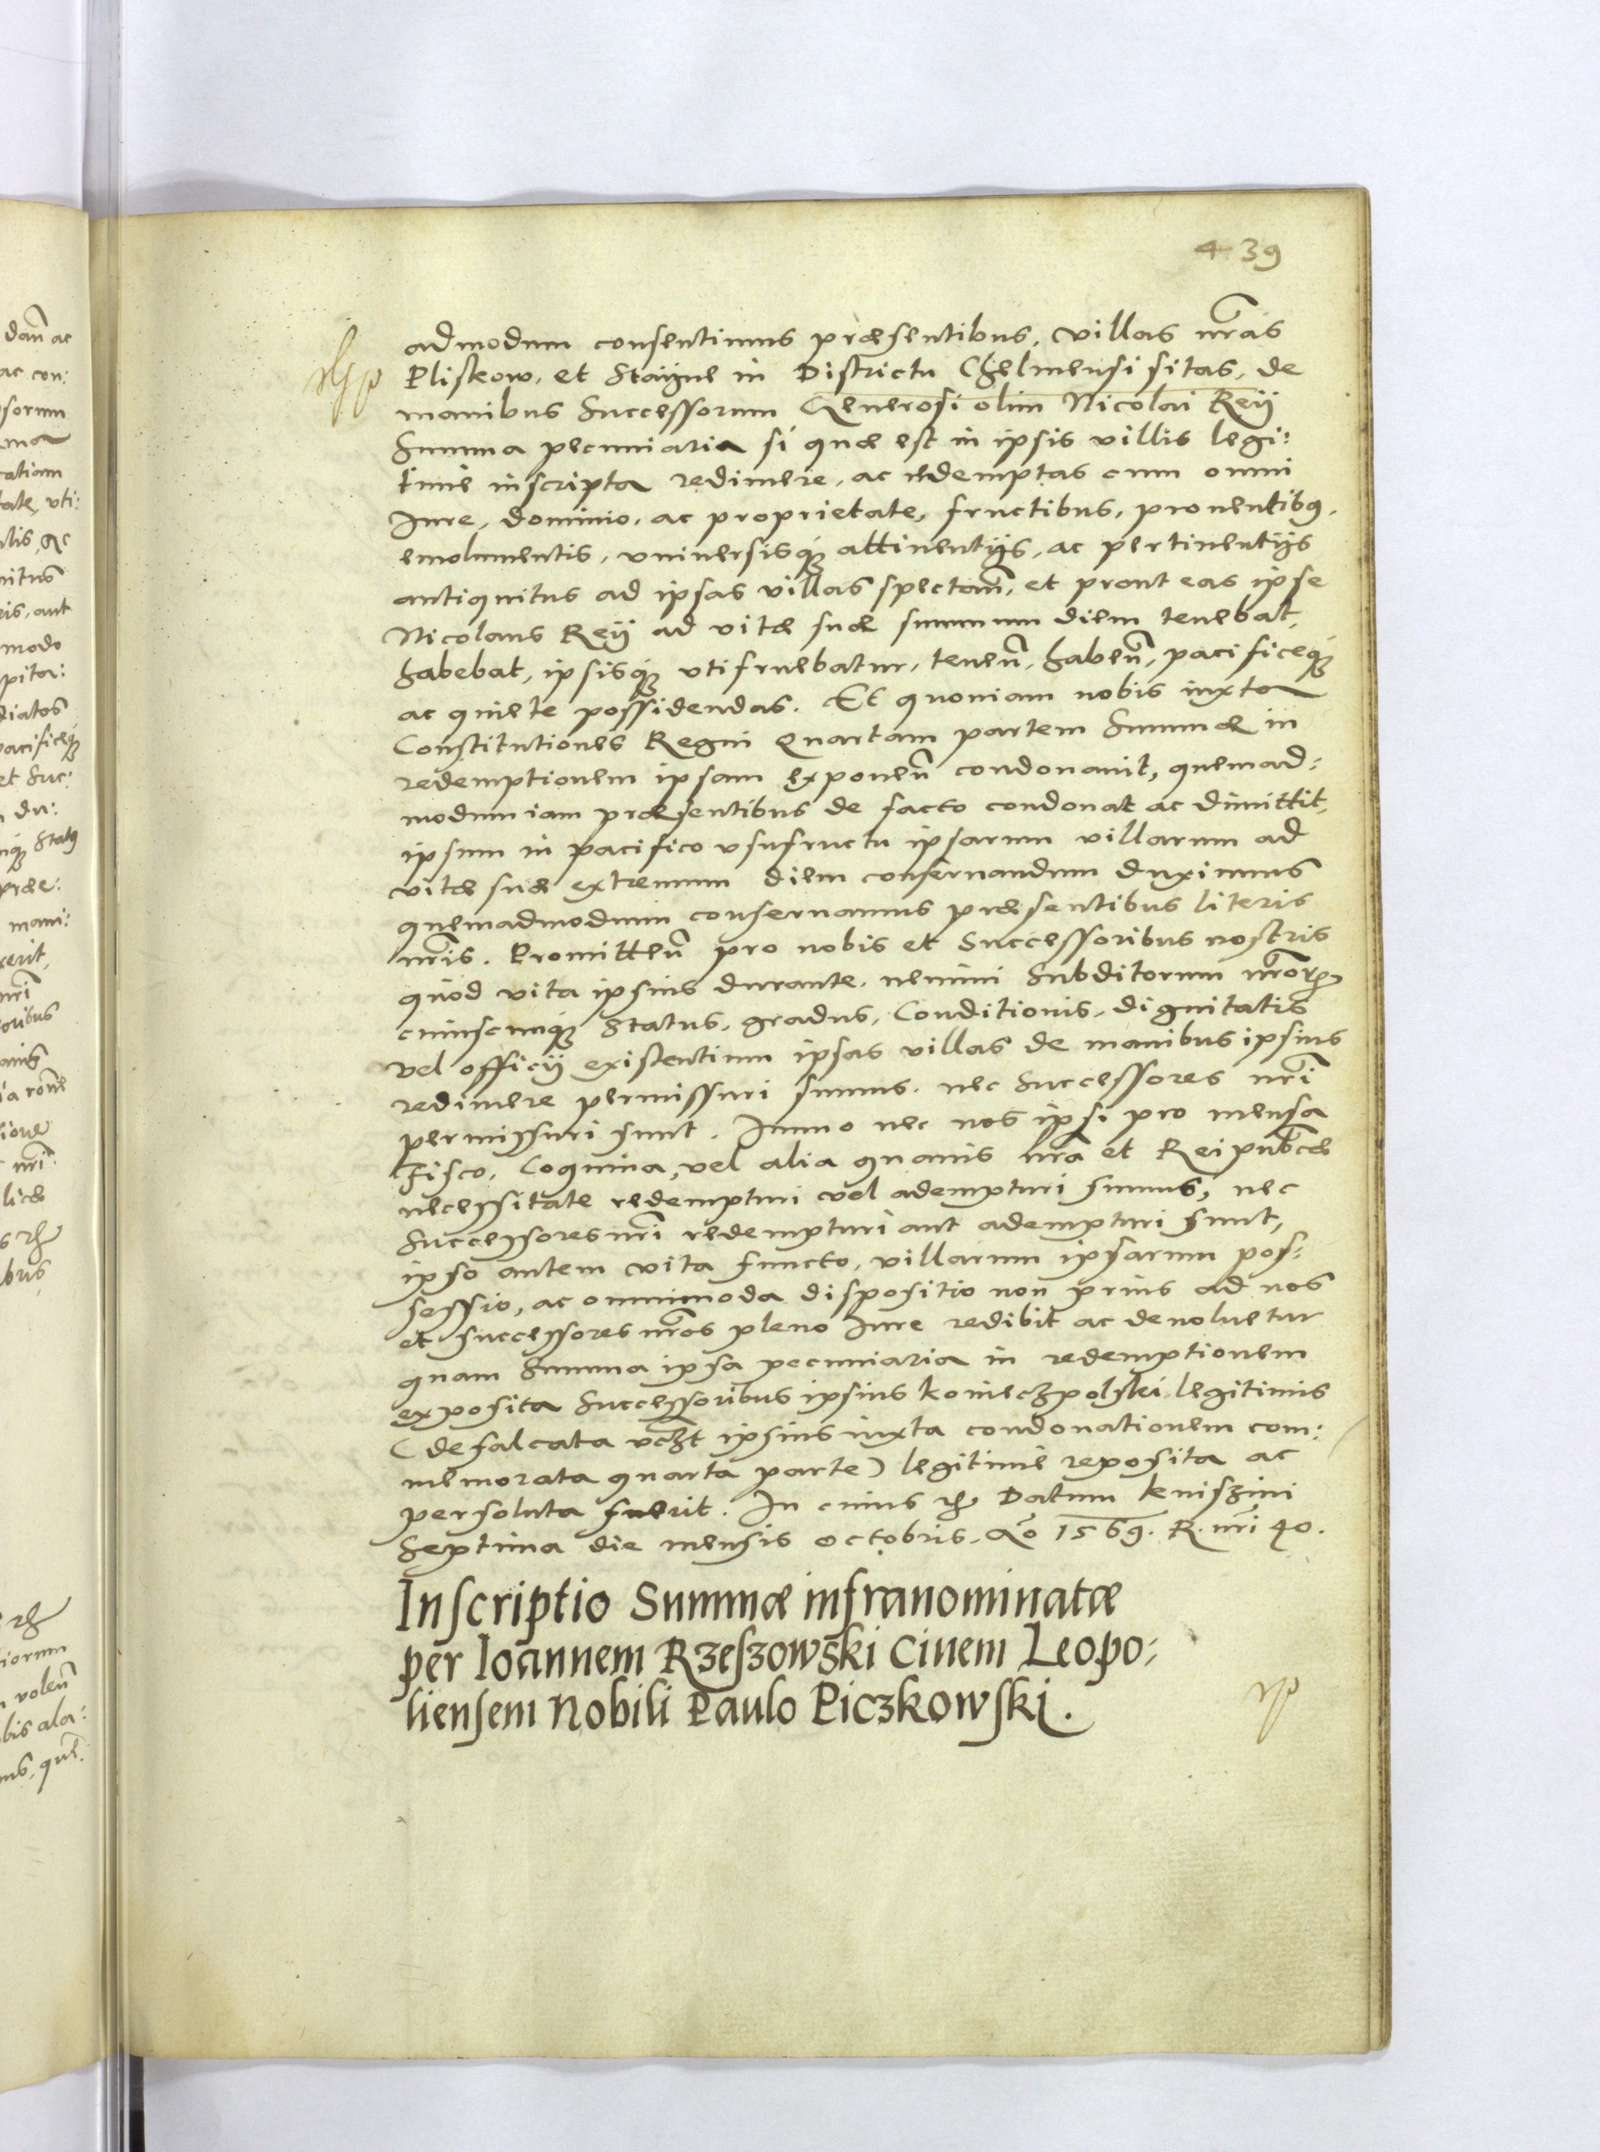 439
admodum consentimus præsentibus, villas nr̃as
Pliskow, et Stayne in Districtu Chelmensi sitas, de
manibus Successorum Generosi olim Nicolai Reÿ
Summa pecuniaria si quæ est in ipsis villis legi:
time inscripta redimere, ac redemptas cum omni
Iure, dominio, ac proprietate, fructibus, prouentibꝰ,
emolumentis, vniuersisq́ꝫ attinentijs, ac pertinentijs
antiquitus ad ipsas villas spectañ, et prout eas ipse
Nicolaus Reÿ ad vitæ suæ summum diem tenebat,
habebat, ipsisq́ꝫ vtifruebatur, teneñ, habeñ, pacificeq́ꝫ
ac quiete possidendas. Et quoniam nobis iuxta
Constitutiones Regni Quartam partem Summæ in
redemptionem ipsam exponeñ condonauit, quemad:
modum iam præsentibus de facto condonat ac dimittit,
ipsum in pacifico vsufructu ipsarum villarum ad
vitæ suæ extremum diem conseruandum duximus
quemadmodum conseruamus præsentibus literis
nr̃is. Promitteñ pro nobis et Successoribus nostris
quod vita ipsius durante, nemini Subditorum nr̃orꝝ
cuiuscunq́ꝫ Status, gradus, Conditionis, dignitatis
vel officij existentium ipsas villas de manibus ipsius
redimere permissuri sumus, nec Successores nr̃i
permissuri sunt. Immo nec nos ipsi pro mensa
Fisco, Coquina, vel alia quauis nr̃a et Reipub̃cæ
necessitate redempturi vel adempturi sumus, nec
Successores nr̃i redempturi aut adempturi sunt,
ipso autem vita functo, villarum ipsarum pos:
sessio, ac omnimoda dispositio non prius ad nos
et successores nr̃os pleno Iure redibit ac deuoluetur
quam Summa ipsa pecuniaria in redemptionem
exposita Successoribus ipsius Konieczpolski legitimis
(defalcata vc̃ꝫt ipsius iuxta condonationem com:
memorata quarta parte) legitime reposita ac
persoluta fuerit. In cuius rḥ Datum Kniszini
Septima die mensis octobris, Ao 1569. R. nr̃i 40.
Inscriptio Summæ infranominatæ
per Ioannem Rzeszowski Ciuem Leopo:
liensem Nobili Paulo Piczkowski.